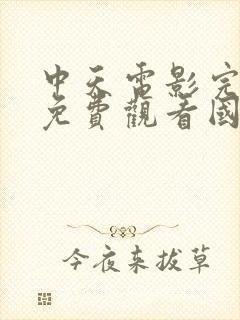 中天電影完
免費觀看國
今夜來拔草